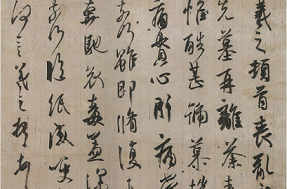 羲之頓首喪亂
先墓再離荼毒
惟酷甚號慕摧
痛貫心肝痛當
奈何雖即脩復
奔馳哀毒益深
奈何臨紙感哽
何言羲之頓首